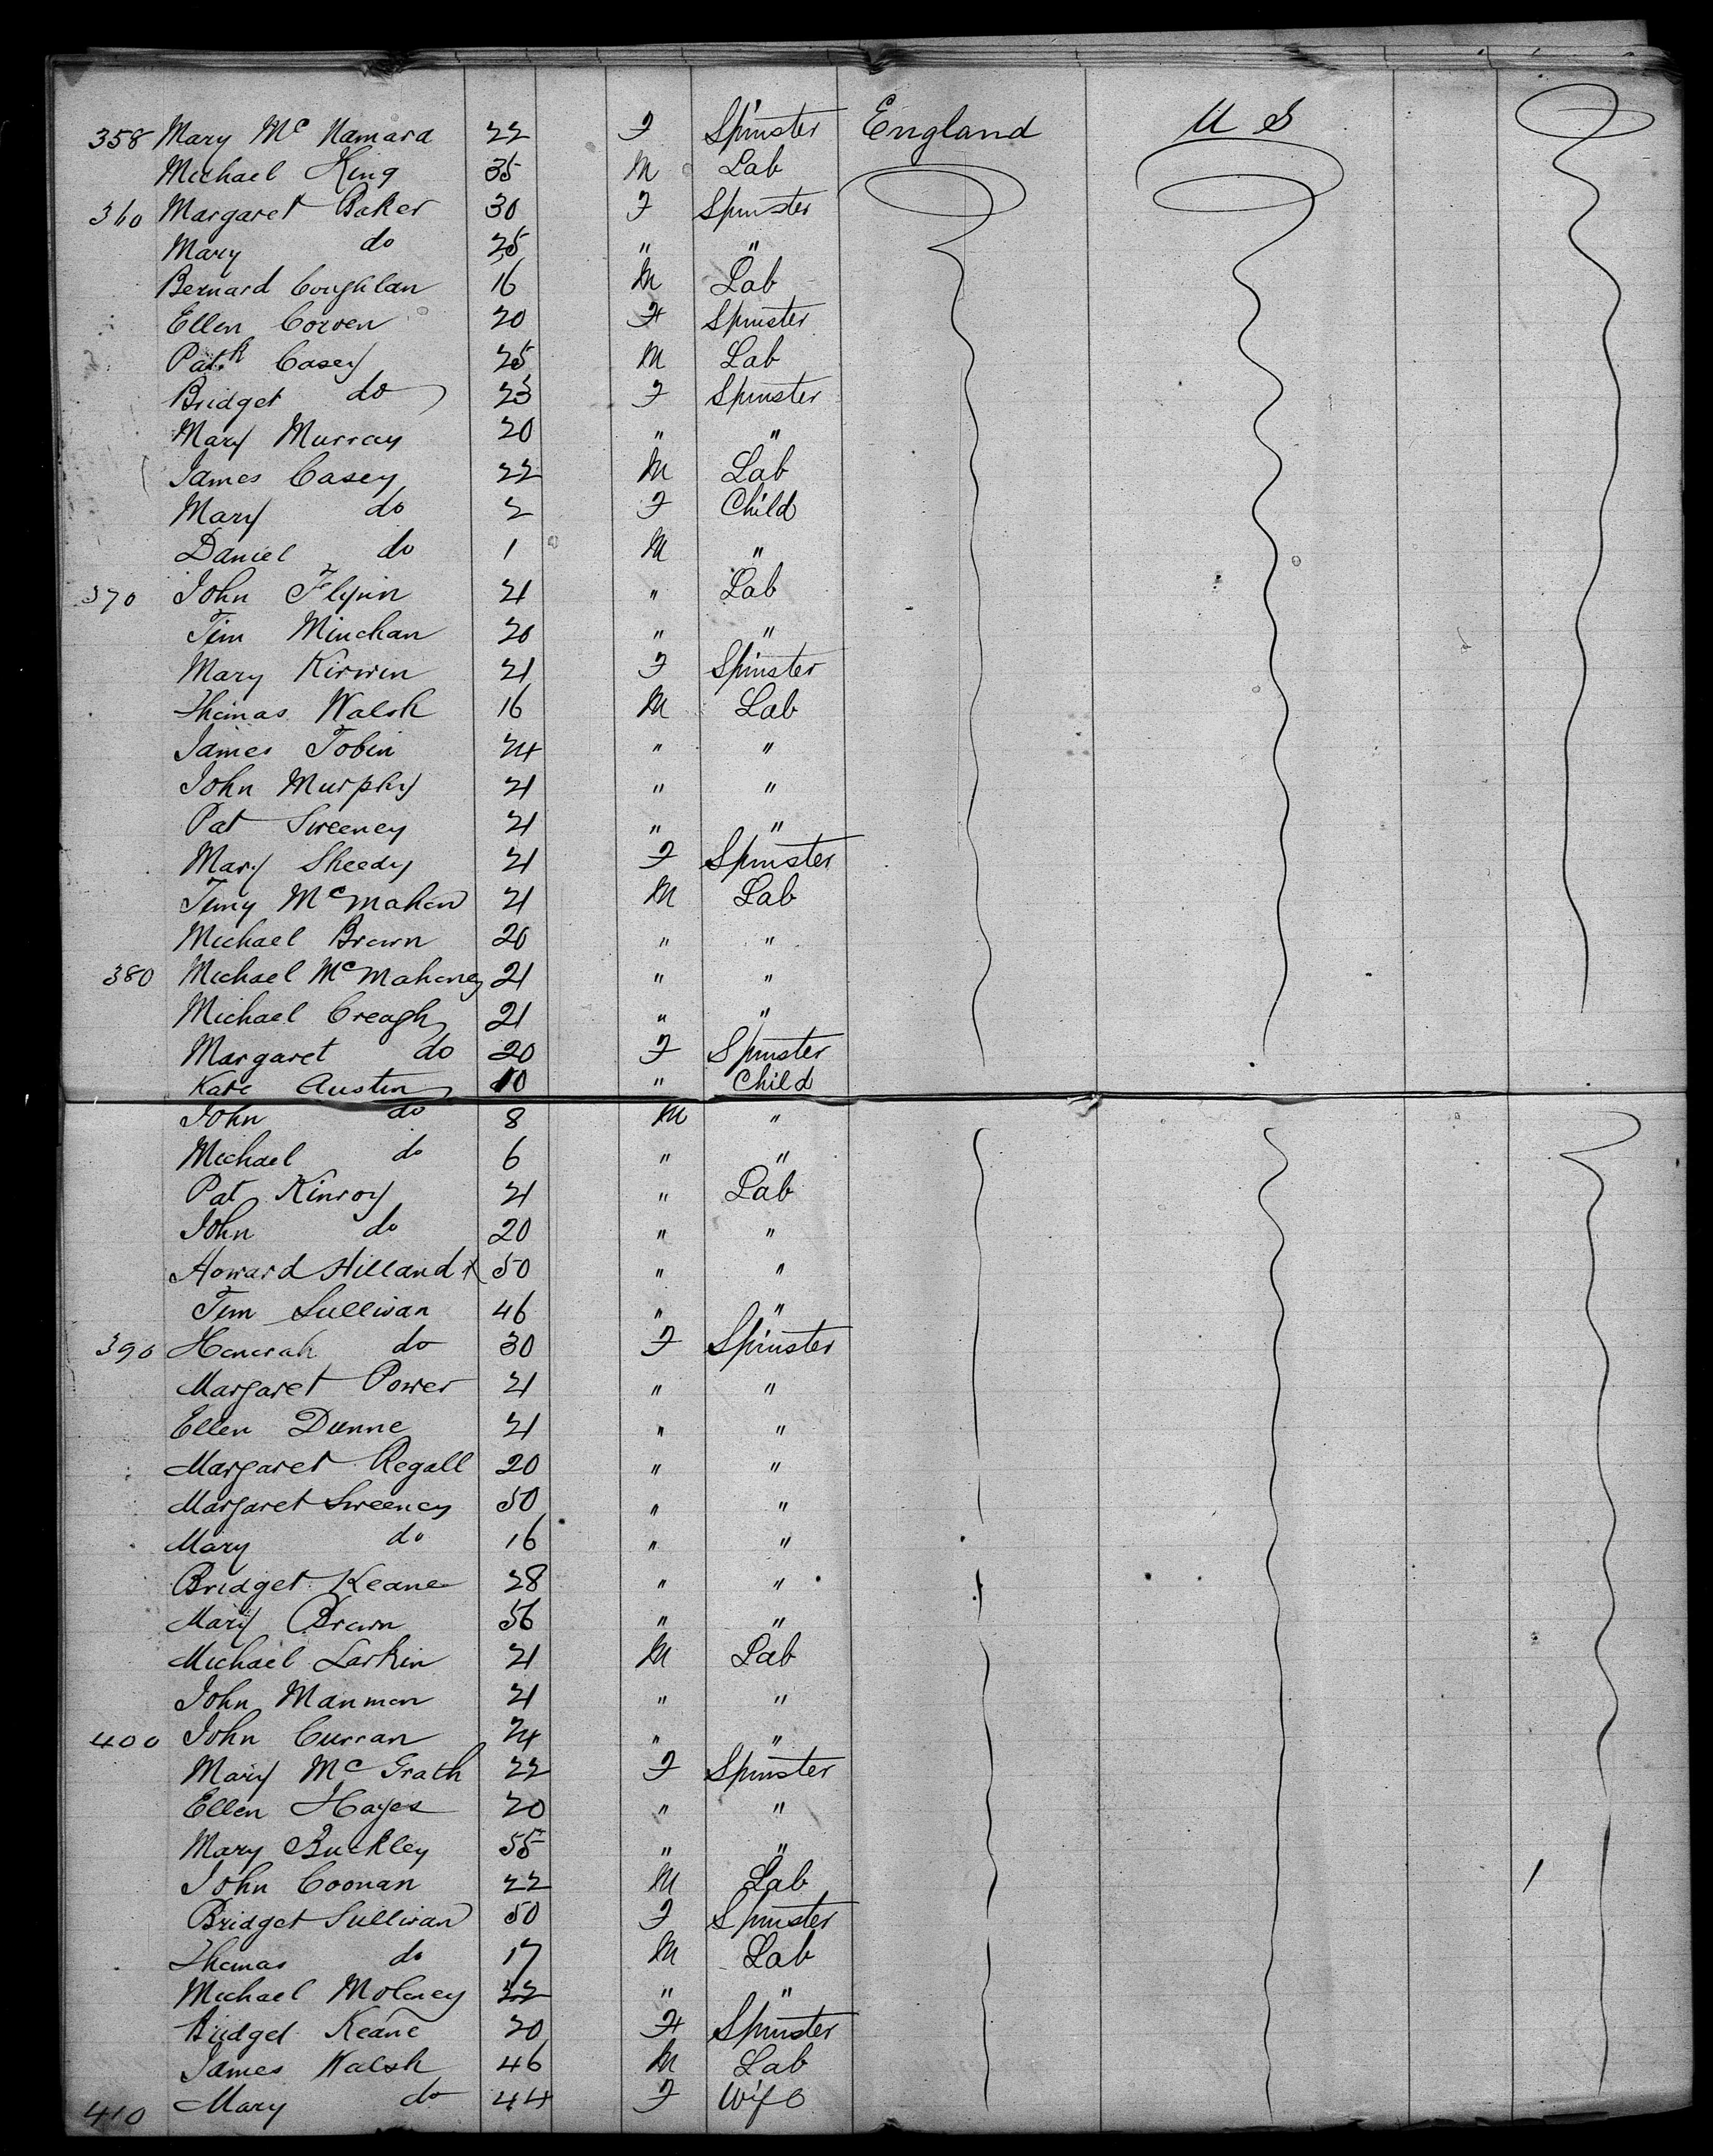 358 Mary Mc Namara 22 F Spinster England U S
Michael King 35 M Lab
360 Margaret Baker 30 F Spinster
Mary do 25 " "
Bernard Coughlan 16 M Lab
Ellen Corven 20 F Spinster
Patk Casey 25 M Lab
Bridget do 23 F Spinster
Mary Murray 20 " "
James Casey 22 M Lab
Mary do 2 F Child
Daniel do 1 M "
370 John Flynn 21 " Lab
Tim Minchan 20 " "
Mary Kirwin 21 F Spinster
Thomas Walsh 16 M Lab
James Tobin 24 " "
John Murphy 21 " "
Pat Sweeney 21 " "
Mary Sheedy 21 F Spinster
Mc Mahon 21 M Lab
Michael Brown 20 " "
380 Michael Mc Mahoney 21 " "
Michael Creagh 21 " "
Margaret do 20 F Spinster
Kate Austin 10 " Child
John do 8 M "
Michael do 6 " "
Pat Kinroy 21 " Lab
John do 20 " "
Howard 50 " "
Tim Sullivan 46 " "
390 Honorah do 30 F Spinster
Margaret Power 21 " "
Ellen Dunne 21 " "
Margaret Regall 20 " "
Margaret Sweeney 50 " "
Mary do 16 " "
Bridget Keane 28 " "
Mary Brown 56 " "
Michael Larkin 21 M Lab
John Manmon 21 " "
400 John Curran 24 " "
Mary Mc Grath 22 F Spinster
Ellen Hayes 20 " "
Mary Buckley 55 " "
John Coonan 22 M Lab
Bridget Sullivan 50 F Spinster
Thomas do 17 M Lab
Michael Moloney 22 " "
Bridget Keane 20 F Spinster
James Walsh 46 M Lab
410 Mary do 44 F Wife